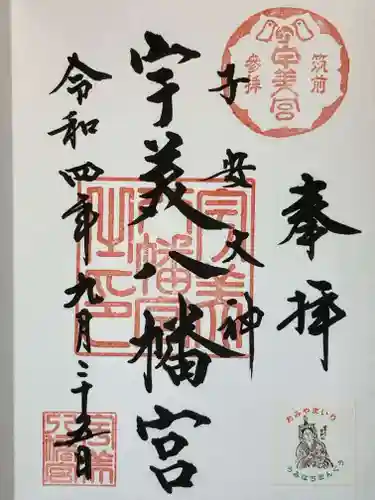 筑前
宇美宮
參拜
奉拝
子安大神
宇美八幡宮
宇美八幡宮之印
令和四年九月二十五日
おみやまいり
うみはちまんぐう